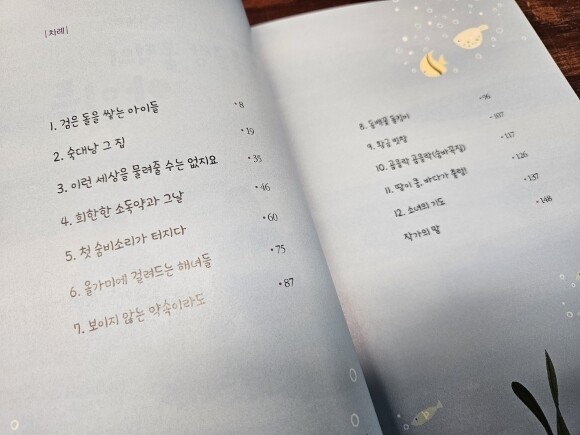 |차례|
1. 검은 돌을 쌓는 아이들 •8
2. 숙대낭 그 집 •19
3. 이런 세상을 물려줄 수는 없지요 •35
4. 희한한 소독약과 그날 •46
5. 첫 숨비소리가 터지다 •60
6. 올가미에 걸려드는 해녀들 •75
7. 보이지 않는 약속이라도 •87
8. 동백꽃 •96
9. 황금 빗창 •107
10. 곱을락 곱을락(숨바꼭질) •117
11. 땅이 쿵, 바다가 출렁! •126
12. 소녀의 기도 •137
작가의 말 •148